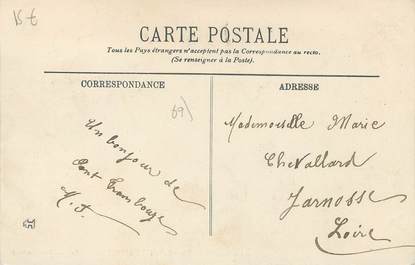 15 €
CARTE POSTALE
Tous les Pays étrangers n'acceptent pas la Correspondance au recto.
(Se renseigner à la Poste).
CORRESPONDANCE
ADRESSE
69)
Un bonjour de
Pont Trambouze
M. J.
Mademoiselle Marie
Chevallard
Jarnosse
Loire